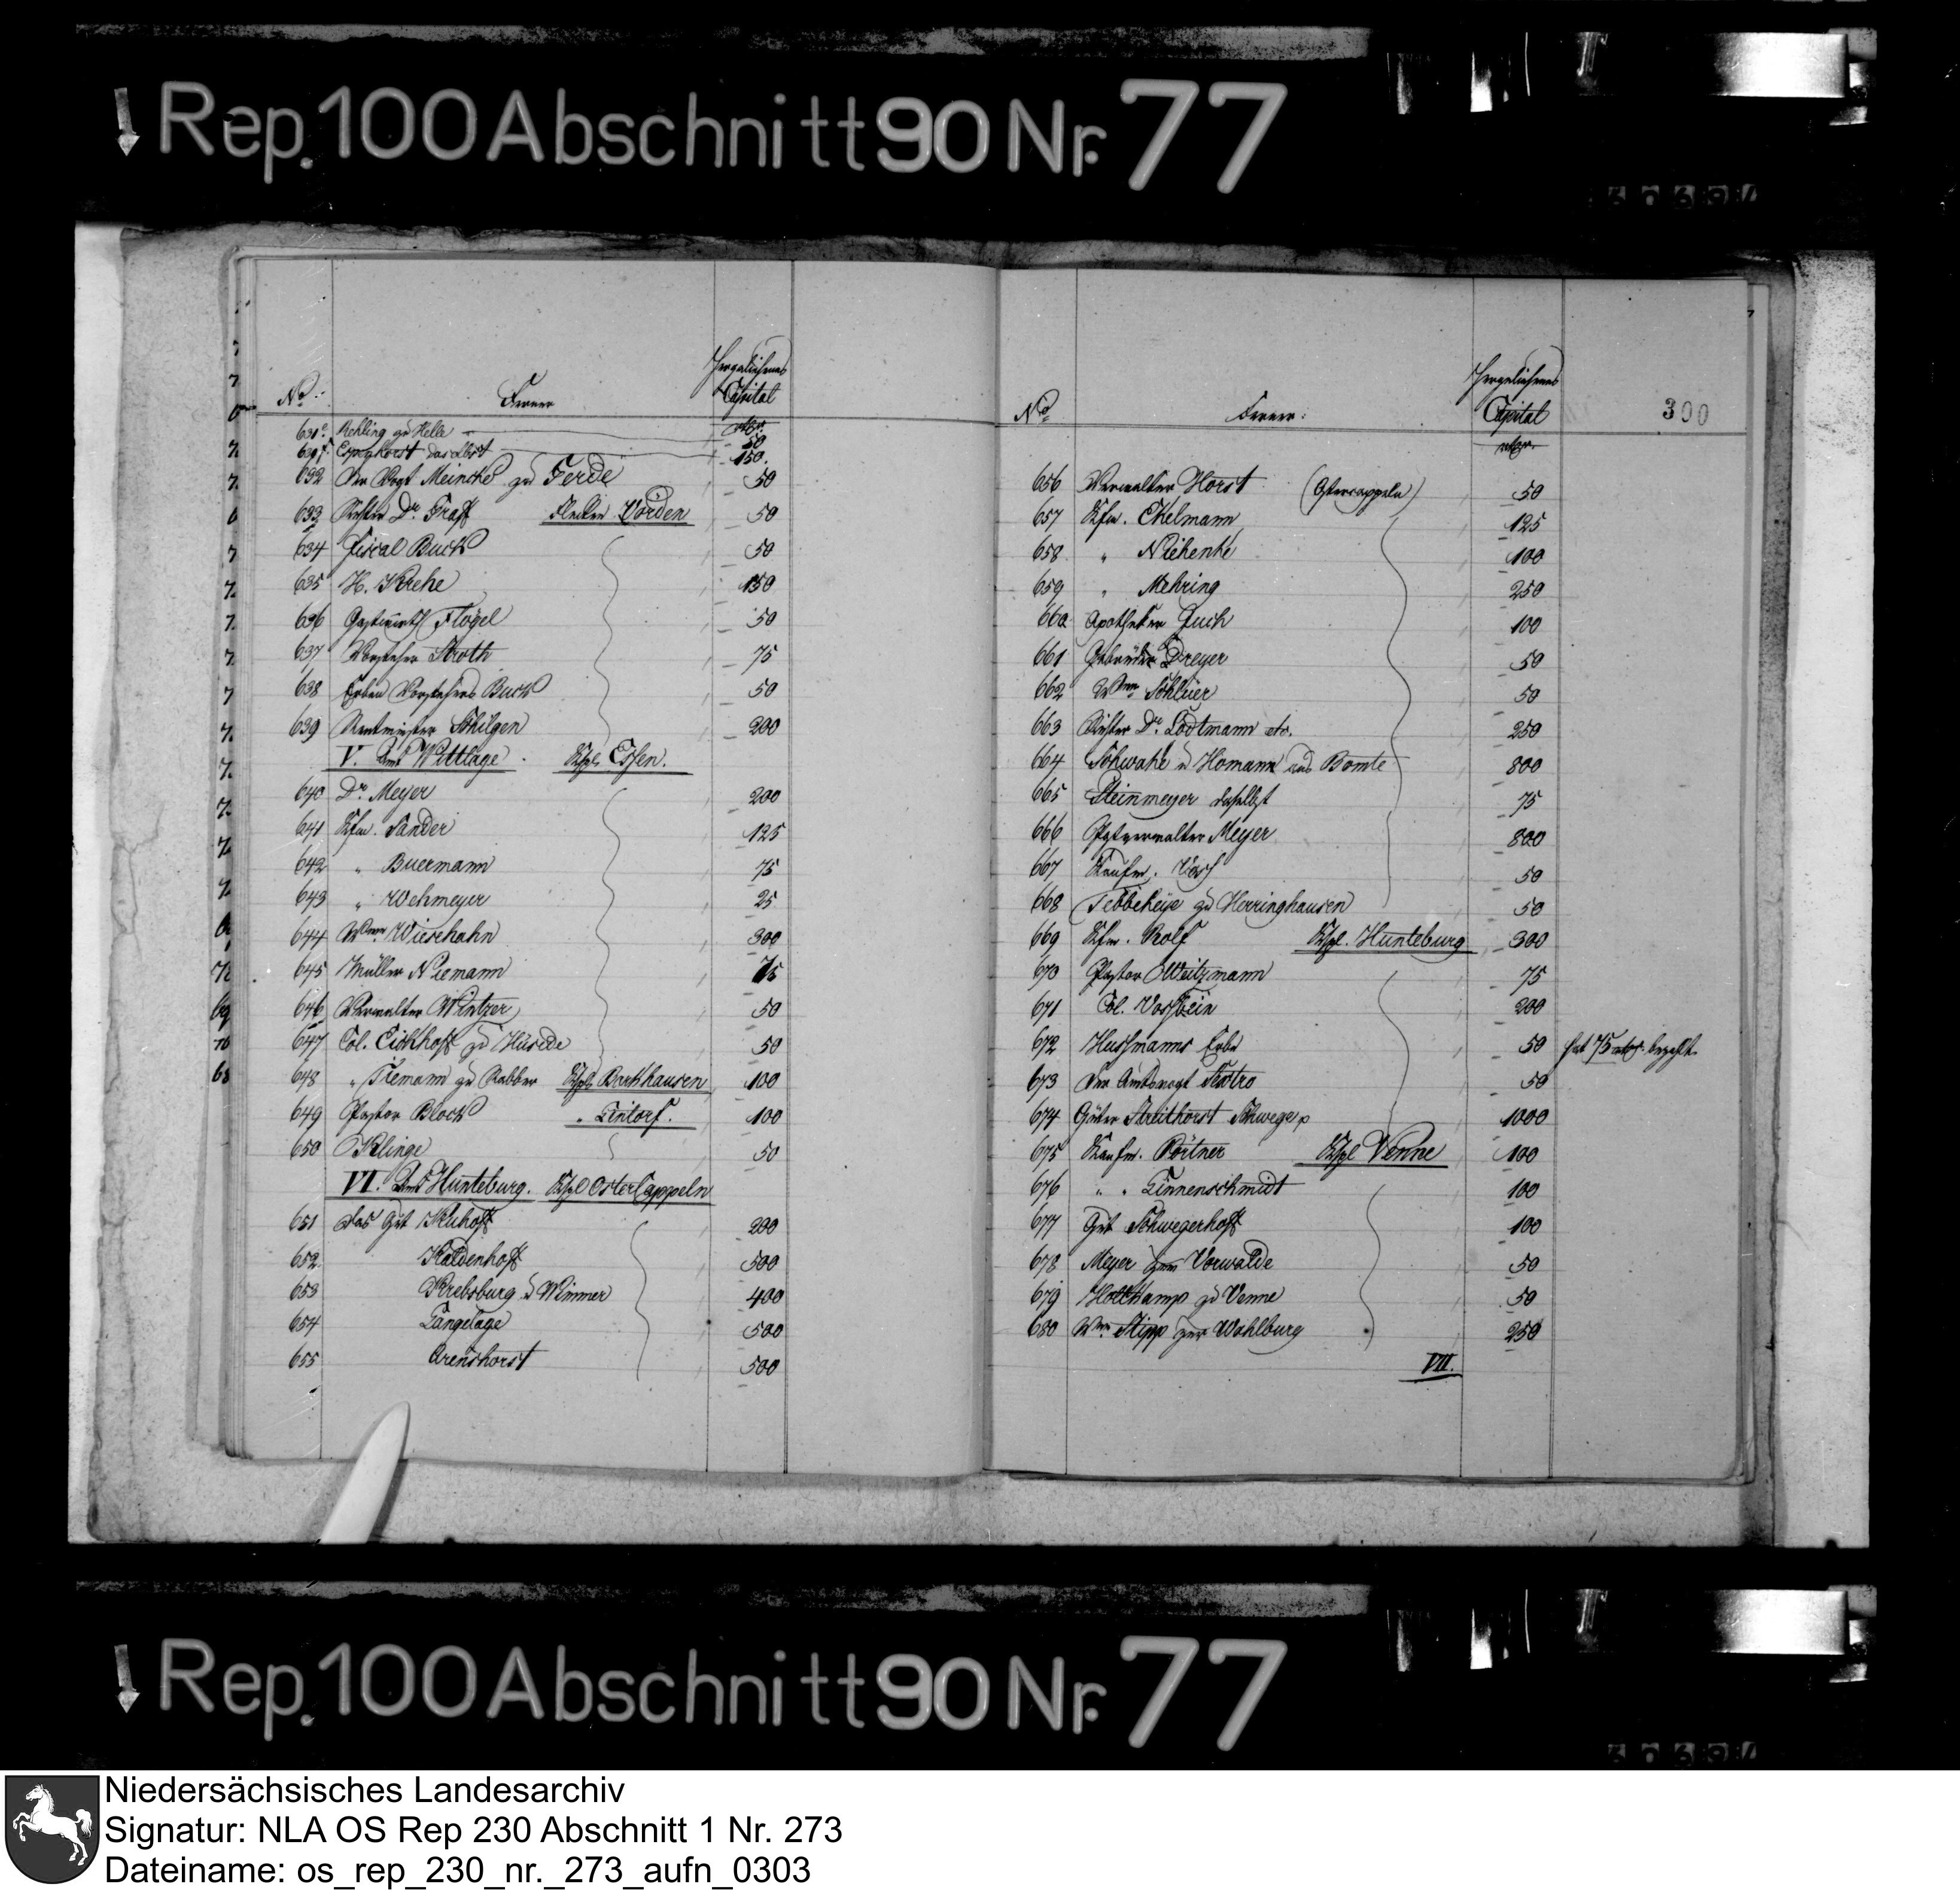 Rep. 100 Abschnitt 90 Nr. 77
No. Ferner Hergeliehenes Capital
rthr.
631e. Rehling zu Helle 50
631f. Espenhorst daselbst 150.
632 Der Vogt Meincke zu Ferde 50
633 Richter Dr. Graff Flecken Vörden 50
634 Fiscal Buck 50
635 H. Krehe 150
636 Gastwirth Flögel 50
637 Vorsteher Stroth 75
638 Erben Vorstehers Buck 50
639 Rentmeister Schilgen 200
V. Amt Wittlage. Kspl. Essen.
640 Dr. Meyer 200
641 Kfm. Sander 125
642 " Buermann 75
643 " Wehmeyer 25
644 Wwe. Wiesehahn 300
645 Müller Niemann 75
646 Verwalter Wintzer 50
647 Col. Eickhoff zu Hüsede 50
648 " Tiemann zu Rabber Kspl. Barkhausen 100
649 Pastor Block " Lintorf. 100
650 Klinge 50
VI. Amt Hunteburg. Kspl Ostercappeln
651 das Gut Kuhoff 200
652 Kaldenhoff 500
653 Krebsburg u Wimmer 400
654 Langelage 500
655 Arenshorst 500
No. Ferner: Hergeliehenes Capital 300
rthr.
656 Verwalter Horst (Ostercappeln) 50
657 Kfm. Ekelmann 125
658 " Niehenke 100
659 " Mehring 250
660 Apotheker Juch 100
661 Gebrüder Dreyer 50
662 Wwe Schluer 50
663 Richter Dr. Lodtmann etc. 250
664 Schwake u Homann aus Bomte 800
665 Steinmeyer daselbst 75
666 Postverwalter Meyer 800
667 Kaufm. Voss 50
668 Tebbeheye zu Herringhausen 50
669 Kfm. Rolf Kspl. Hunteburg 300
670 Pastor Weitzmann 75
671 Col. Vossbein 200
672 Hussmanns Erbe 50 hat 75 rthr. bezahlt.
673 der Amtsvogt Sextro 50
674 Güter Streithorst Schwege p 1000
675 Kaufm. Pörtner Kspl Venne 100
676 " " Linnenschmidt 100
677 Gut Schwegerhoff 100
678 Meyer zum Vorwalde 50
679 Holtkamp zu Venne 50
680 Wwe. Stipp zur Wahlburg 250
VII.
Rep. 100 Abschnitt 90 Nr. 77
Niedersächsisches Landesarchiv
Signatur: NLA OS Rep 230 Abschnitt 1 Nr. 273
Dateiname: os_rep_230_nr._273_aufn_0303